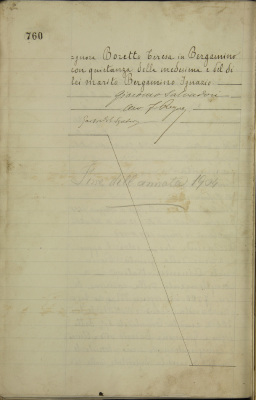 760
ignora Boretto Teresa in Bergamino
con quietanza della medesima e del di
lei marito Bergamino Ignazio
Giacomo Salvadori
Fine dell'annata 1904